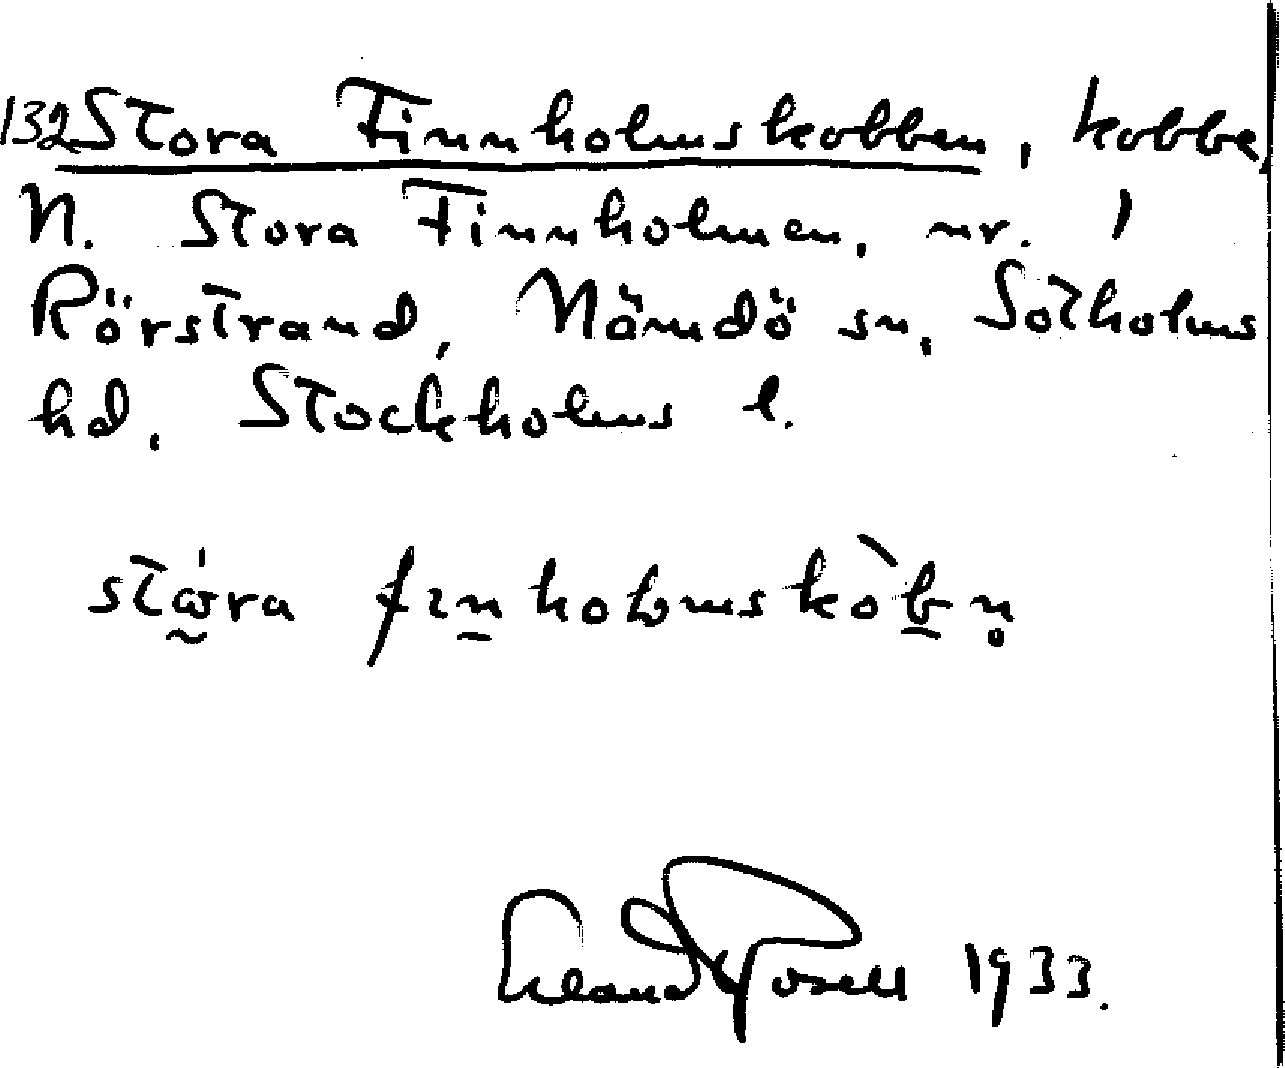 132 Stora Finnholmskobben, kobbe,
N. Stora Finnholmen, nr. 1
Rörstrand, Nämdö sn, Sotholms
hd, Stockholms l.
stɷ́ra fınholmskòbn̥
Erland Rosell 1933.